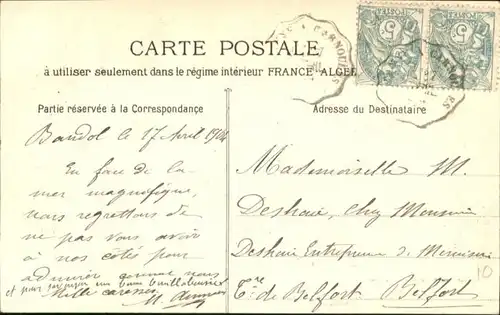 CARTE POSTALE
à utiliser seulement dans le régime intérieur FRANCE-ALGER
Partie réservée à la Correspondance
Bandol le 17 Avril 1904
En face de la
mer magnifique,
nous regrettons de
ne pas vous avoir
à nos côtés pour
admirer comme nous
et pour partager une bonne bouillabaisse
Mille caresses
M.
Adresse du Destinataire
Mademoiselle M.
Deshaie, chez Monsieur
Deshaie Entrepreneur de Menuiserie
Tre. de Belfort. Belfort
10